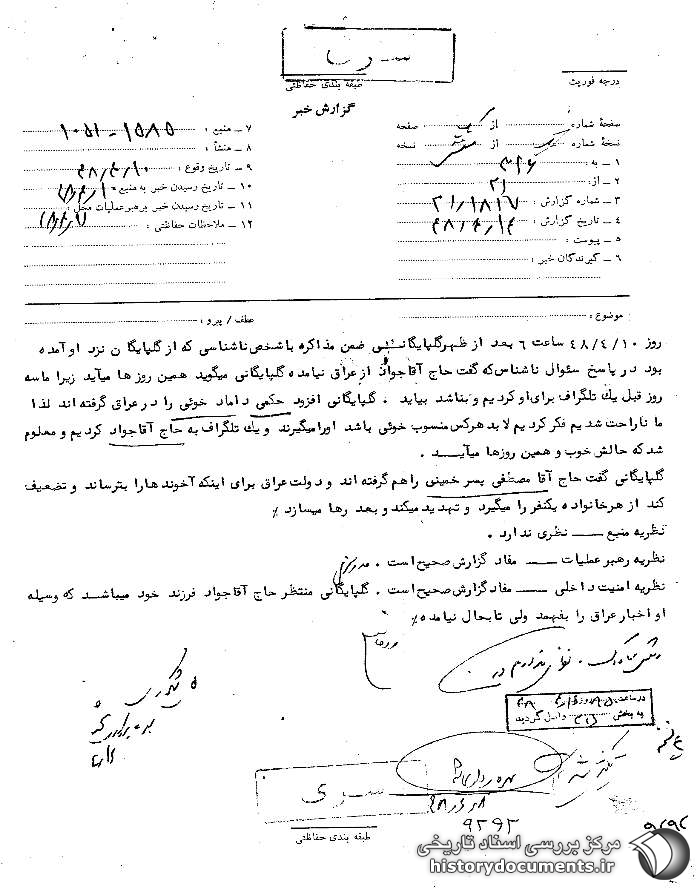 سری
طبقه بندی حفاظتی
درجه فوریت
گزارش خبر
صفحهٔ شماره از یک صفحه
نسخهٔ شماره یک از نسخه
۱ ـ به : ۳۱۶
۲ ـ از: ۲۱
۳ ـ شماره گزارش :
۴ ـ تاریخ گزارش :
۵ ـ پیوست :
۶ ـ گیرندگان خبر :
۷ ـ منبع : ۱۵۸۵ -
۸ ـ منشأ :
۹ ـ تاریخ وقوع : ۴۸/۴/۱۰
۱۰ ـ تاریخ رسیدن خبر به منبع :
۱۱ ـ تاریخ رسیدن خبر برهبر عملیات محل :
۱۲ ـ ملاحظات حفاظتی :
موضوع :
عطف / پیرو :
روز ۴۸/۴/۱۰ ساعت ۶ بعد از ظهر گلپایگانی ضمن مذاکره با شخص ناشناسی که از گلپایگان نزد او آمده
بود در پاسخ سئوال ناشناس که گفت حاج آقا جواد از عراق نیامده گلپایگانی میگوید همین روز ها میآید زیرا ما سه
روز قبل یک تلگراف برای او کردیم و بناشد بیاید . گلپایگانی افزود حکمی داماد خوئی را در عراق گرفته اند لذا
ما ناراحت شدیم فکر کردیم لابد هرکس منسوب خوئی باشد اورا میگیرند و یک تلگراف به حاج آقا جواد کردیم و معلوم
شد که حالش خوب و همین روزها میآیـــد .
گلپایگانی گفت حاج آقا مصطفی پسر خمینی را هم گرفته اند و دولت عراق برای اینکه آخوند ها را بترساند و تضعیف
کند از هر خانواده یکنفر را میگیرد و تهدید میکند و بعد رها میسازد ٪
نظریه منبع ــــ نظری ندارد .
نظریه رهبر عملیات ــــ مفاد گزارش صحیح است .
نظریه امنیت داخلی ــــ مفاد گزارش صحیح است . گلپایگانی منتظر حاج آقا جواد فرزند خود میباشـــد که وسیله
او اخبار عراق را بفهمد ولی تا بحال نیامده ٪
در ساعت روز
به بخش واصل گردید
بهره برداری
سری
۹۲۹۲
طبقه بندی حفاظتی
۹۲۹۲
مرکز بررسی اسناد تاریخی
historydocuments.ir